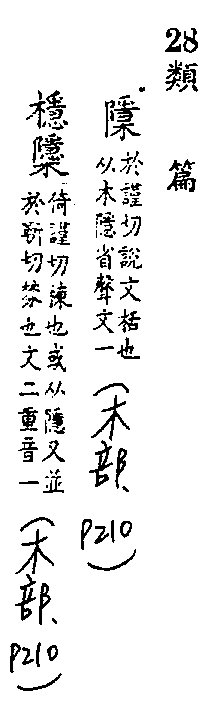 28 類 篇
檃
於謹切說文栝也
从木隱省聲文一
(木部、P210)
檼櫽
倚謹切棟也或从隱又並
於靳切棼也文二重音一
(木部、P210)